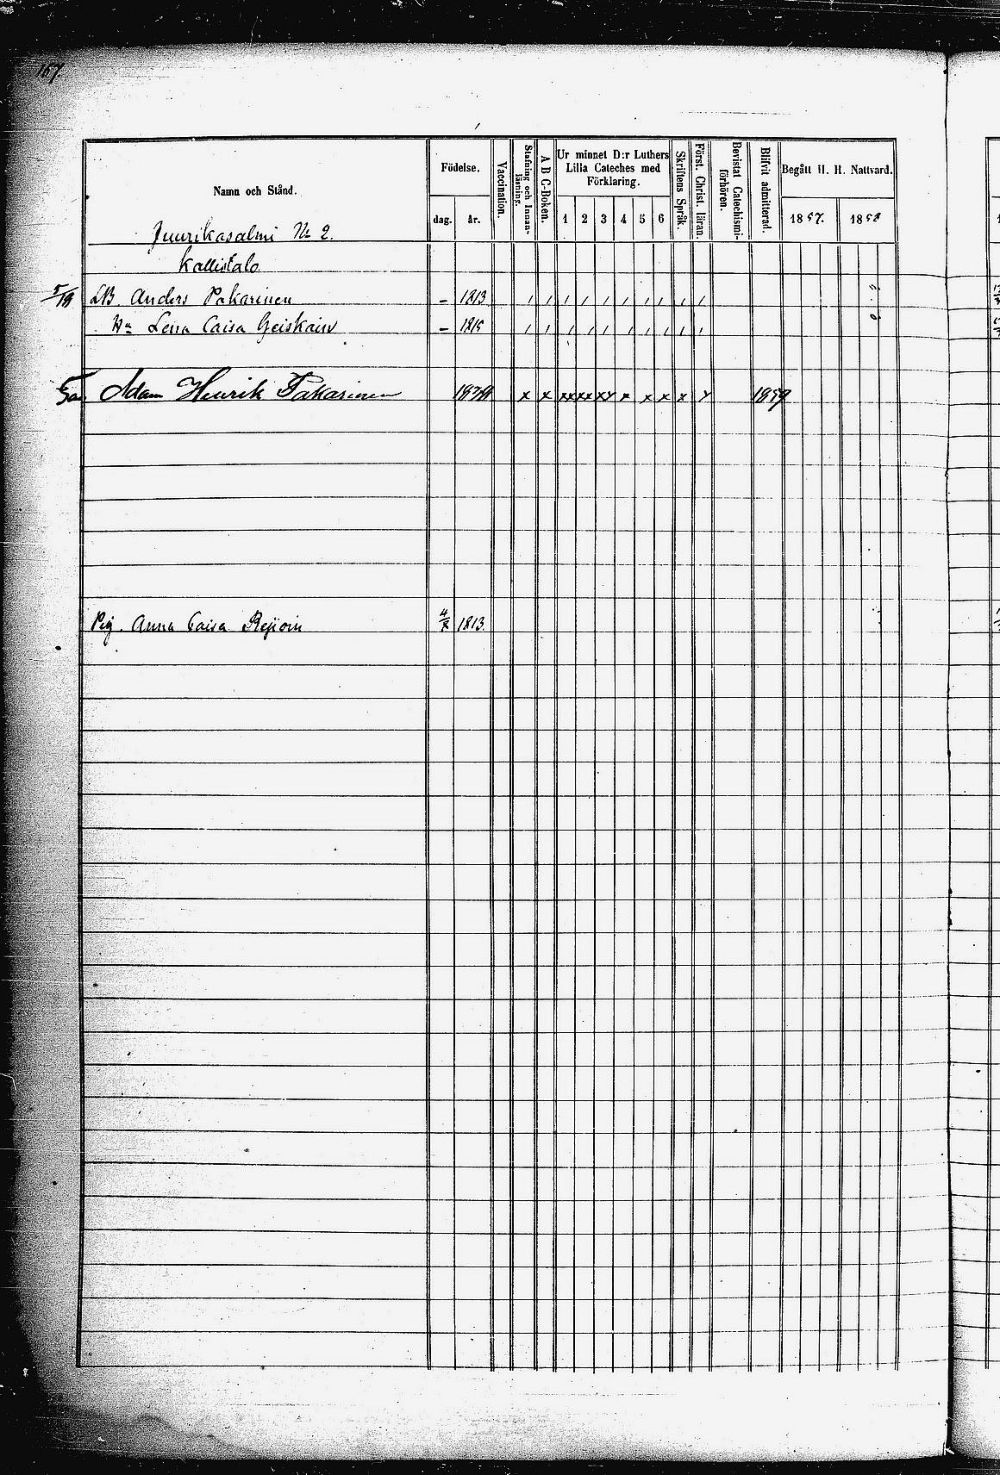 167.
Namn och Stånd.
Födelse.
dag. år.
Vaccination.
Stafning och Innan-läsning.
A B C-Boken.
Ur minnet D:r Luthers
Lilla Cateches med
Förklaring.
1 2 3 4 5 6
Skriftens Språk.
Först. Christ. läran.
Bevistat Catechismi-förhören.
Blifvit admitterad.
Begått H. H. Nattvard.
1857. 1858
Juurikasalmi № 2.
Kallistalo
5/19 LB. Anders Pakarinen – 1813
Hu Lena Caisa Geiskain – 1815
Adam Henrik Pakarinen x x xx xx xx x x x x 1859
Pig. Anna Caisa Repoin 1813.